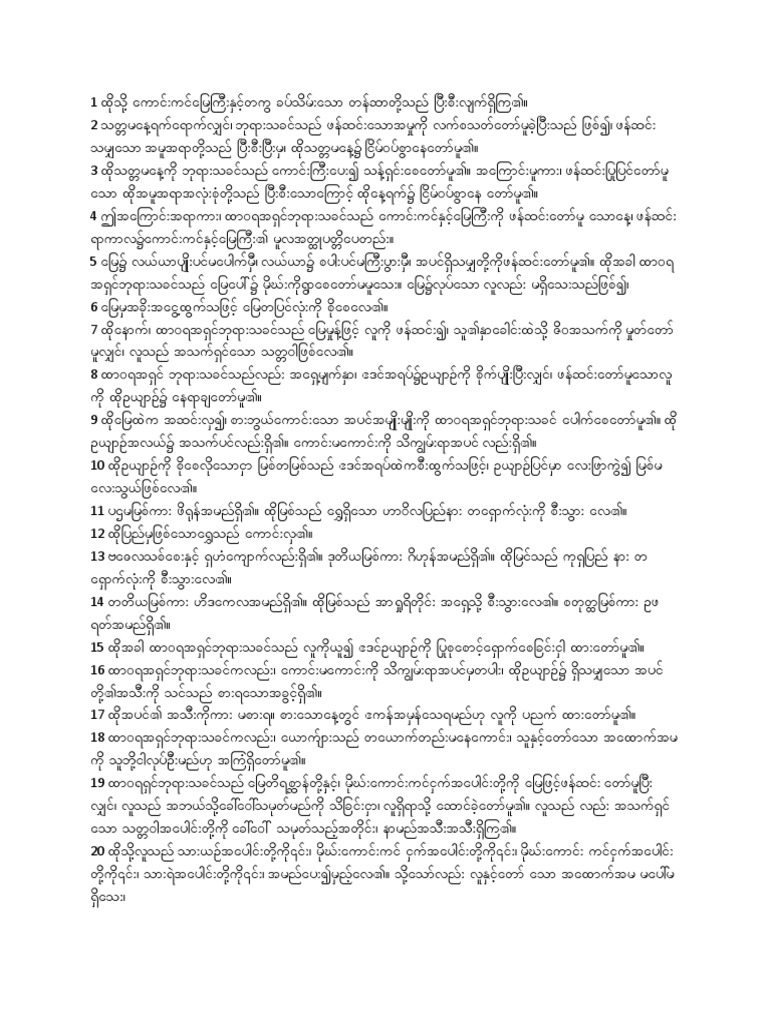 1 ထိုသို့ ကောင်းကင်မြေကြီးနှင့်တကွ ခပ်သိမ်းသော တန်ဆာတို့သည် ပြီးစီးလျက်ရှိကြ၏။
2 သတ္တမနေ့ရက်ရောက်လျှင်၊ ဘုရားသခင်သည် ဖန်ဆင်းသောအမှုကို လက်စသတ်တော်မူခဲ့ပြီးသည် ဖြစ်၍၊ ဖန်ဆင်း
သမျှသော အမှုအရာတို့သည် ပြီးစီးပြီးမှ၊ ထိုသတ္တမနေ့၌ ငြိမ်ဝပ်စွာနေတော်မူ၏။
3 ထိုသတ္တမနေ့ကို ဘုရားသခင်သည် ကောင်းကြီးပေး၍ သန့်ရှင်းစေတော်မူ၏။ အကြောင်းမူကား၊ ဖန်ဆင်းပြုပြင်တော်မူ
သော ထိုအမှုအရာအလုံးစုံတို့သည် ပြီးစီးသောကြောင့် ထိုနေ့ရက်၌ ငြိမ်ဝပ်စွာနေ တော်မူ၏။
4 ဤအကြောင်းအရာကား၊ ထာဝရအရှင်ဘုရားသခင်သည် ကောင်းကင်နှင့်မြေကြီးကို ဖန်ဆင်းတော်မူ သောနေ့၊ ဖန်ဆင်း
ရာကာလ၌ကောင်းကင်နှင့်မြေကြီး၏ မူလအတ္ထုပ္ပတ္တိပေတည်း။
5 မြေ၌ လယ်ယာပျိုးပင်မပေါက်မှီ၊ လယ်ယာ၌ စပါးပင်မကြီးပွားမှီ၊ အပင်ရှိသမျှတို့ကိုဖန်ဆင်းတော်မူ၏။ ထိုအခါ ထာဝရ
အရှင်ဘုရားသခင်သည် မြေပေါ်၌ မိုဃ်းကိုရွာစေတော်မမူသေး။ မြေ၌လုပ်သော လူလည်း မရှိသေးသည်ဖြစ်၍၊
6 မြေမှအခိုးအငွေ့ထွက်သဖြင့် မြေတပြင်လုံးကို စိုစေလေ၏။
7 ထိုနောက်၊ ထာဝရအရှင်ဘုရားသခင်သည် မြေမှုန့်ဖြင့် လူကို ဖန်ဆင်း၍၊ သူ၏နှာခေါင်းထဲသို့ ဇိဝအသက်ကို မှုတ်တော်
မူလျှင်၊ လူသည် အသက်ရှင်သော သတ္တဝါဖြစ်လေ၏။
8 ထာဝရအရှင် ဘုရားသခင်သည်လည်း အရှေ့မျက်နှာ၊ ဧဒင်အရပ်၌ဥယျာဉ်ကို စိုက်ပျိုးပြီးလျှင်၊ ဖန်ဆင်းတော်မူသောလူ
ကို ထိုဥယျာဉ်၌ နေရာချတော်မူ၏။
9 ထိုမြေထဲက အဆင်းလှ၍၊ စားဘွယ်ကောင်းသော အပင်အမျိုးမျိုးကို ထာဝရအရှင်ဘုရားသခင် ပေါက်စေတော်မူ၏။ ထို
ဥယျာဉ်အလယ်၌ အသက်ပင်လည်းရှိ၏။ ကောင်းမကောင်းကို သိကျွမ်းရာအပင် လည်းရှိ၏။
10 ထိုဥယျာဉ်ကို စိုစေလိုသောငှာ မြစ်တမြစ်သည် ဧဒင်အရပ်ထဲကစီးထွက်သဖြင့်၊ ဥယျာဉ်ပြင်မှာ လေးဖြာကွဲ၍ မြစ်မ
လေးသွယ်ဖြစ်လေ၏။
11 ပဌမမြစ်ကား ဖိရုန်အမည်ရှိ၏။ ထိုမြစ်သည် ရွှေရှိသော ဟာဝိလပြည်နား တရှောက်လုံးကို စီးသွား လေ၏။
12 ထိုပြည်မှဖြစ်သောရွှေသည် ကောင်းလှ၏။
13 ဗဓေလသစ်စေးနှင့် ရှဟံကျောက်လည်းရှိ၏။ ဒုတိယမြစ်ကား ဂိဟုန်အမည်ရှိ၏။ ထိုမြင်သည် ကုရှပြည် နား တ
ရှောက်လုံးကို စီးသွားလေ၏။
14 တတိယမြစ်ကား ဟိဒကေလအမည်ရှိ၏။ ထိုမြစ်သည် အာရှုရိတိုင်း အရှေ့သို့ စီးသွားလေ၏။ စတုတ္ထမြစ်ကား ဥဖ
ရတ်အမည်ရှိ၏။
15 ထိုအခါ ထာဝရအရှင်ဘုရားသခင်သည် လူကိုယူ၍ ဧဒင်ဥယျာဉ်ကို ပြုစုစောင့်ရှောက်စေခြင်းငှါ ထားတော်မူ၏။
16 ထာဝရအရှင်ဘုရားသခင်ကလည်း၊ ကောင်းမကောင်းကို သိကျွမ်းရာအပင်မှတပါး၊ ထိုဥယျာဉ်၌ ရှိသမျှသော အပင်
တို့၏အသီးကို သင်သည် စားရသောအခွင့်ရှိ၏။
17 ထိုအပင်၏ အသီးကိုကား မစားရ။ စားသောနေ့တွင် ဧကန်အမှန်သေရမည်ဟု လူကို ပညတ် ထားတော်မူ၏။
18 ထာဝရအရှင်ဘုရားသခင်ကလည်း၊ ယောက်ျားသည် တယောက်တည်းမနေကောင်း၊ သူနှင့်တော်သော အထောက်အမ
ကို သူ့ဘို့ငါလုပ်ဦးမည်ဟု အကြံရှိတော်မူ၏။
19 ထာဝရရှင်ဘုရားသခင်သည် မြေတိရစ္ဆာန်တို့နှင့်၊ မိုဃ်းကောင်းကင်ငှက်အပေါင်းတို့ကို မြေဖြင့်ဖန်ဆင်း တော်မူပြီး
လျှင်၊ လူသည် အဘယ်သို့ခေါ်ဝေါ်သမုတ်မည်ကို သိခြင်းငှာ၊ လူရှိရာသို့ ဆောင်ခဲ့တော်မူ၏။ လူသည် လည်း အသက်ရှင်
သော သတ္တဝါအပေါင်းတို့ကို ခေါ်ဝေါ် သမုတ်သည့်အတိုင်း၊ နာမည်အသီးအသီးရှိကြ၏။
20 ထိုသို့လူသည် သားယဉ်အပေါင်းတို့ကို၎င်း၊ မိုဃ်းကောင်းကင် ငှက်အပေါင်းတို့ကို၎င်း၊ မိုဃ်းကောင်း ကင်ငှက်အပေါင်း
တို့ကို၎င်း၊ သားရဲအပေါင်းတို့ကို၎င်း၊ အမည်ပေး၍မှည့်လေ၏။ သို့သော်လည်း လူနှင့်တော် သော အထောက်အမ မပေါ်မ
ရှိသေး၊